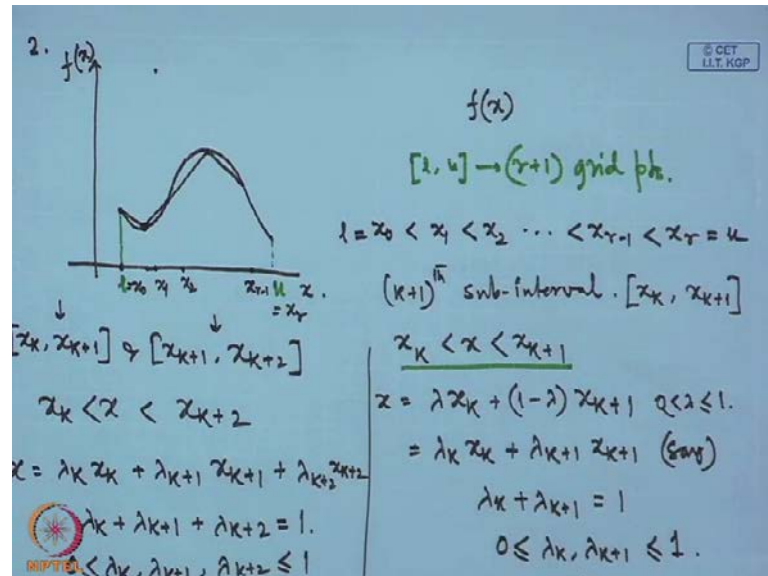 2.
f(x)
© CET
I.I.T. KGP
f(x)
[l, u] → (r+1) grid pts.
l = x₀ < x₁ < x₂ ... < x_{r-1} < x_r = u
l=x₀ x₁ x₂ x_{r-1} u x.
= x_r
(K+1)^{th} sub-interval. [x_K, x_{K+1}]
x_K < x < x_{K+1}
x = λ x_K + (1-λ) x_{K+1} 0<λ≤1.
= λ_K x_K + λ_{K+1} x_{K+1} (say)
λ_K + λ_{K+1} = 1
0 ≤ λ_K, λ_{K+1} ≤ 1.
↓ ↓
[x_K, x_{K+1}] & [x_{K+1}, x_{K+2}]
x_K < x < x_{K+2}
x = λ_K x_K + λ_{K+1} x_{K+1} + λ_{K+2} x_{K+2}
λ_K + λ_{K+1} + λ_{K+2} = 1.
0 ≤ λ_K, λ_{K+1}, λ_{K+2} ≤ 1
NPTEL